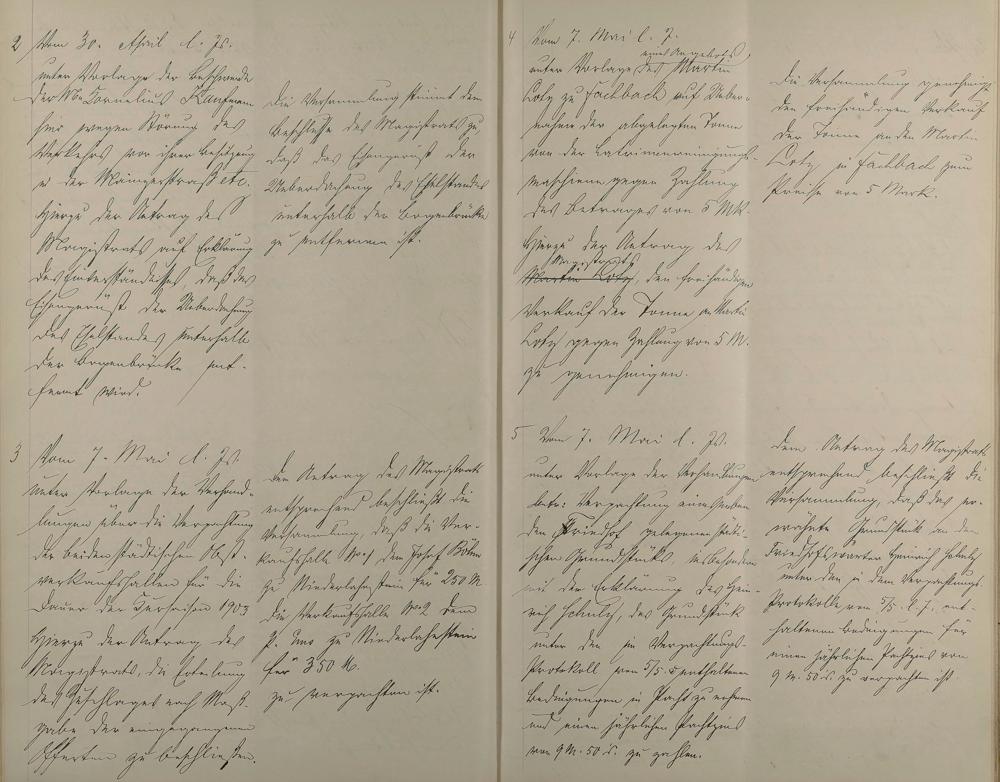 2 Vom 30. April l. Js.
unter Vorlage der Beschwerde
der Wwe Cornelius Kaufmann
hier wegen Störung des
Verkehrs vor ihrer Besitzung
in der Mainzerstraße etc.
Hierzu der Antrag des
Magistrats auf Erklärung
des Einverständnisses, daß das
Eisengerüst der Ueberdachung
des Eselstandes unterhalb
der Bogenbrücke ent-
fernt wird.
Die Versammlung stimmt dem
Beschlusse des Magistrats zu,
daß das Eisengerüst der
Ueberdachung des Eselstandes
unterhalb der Bogenbrücke
zu entfernen ist.
3 Vom 7. Mai l. Js.
unter Vorlage der Verhand-
lungen über die Verpachtung
der beiden städtischen Obst-
verkaufshallen für die
Dauer der Kursaison 1903
Hierzu der Antrag des
Magistrats, die Erteilung
des Zuschlages nach Maß-
gabe der eingegangenen
Offerten zu beschließen.
Dem Antrag des Magistrats
entsprechend beschließt die
Versammlung, daß die Ver-
kaufshalle No 1 dem Josef
zu Niederlahnstein für 250 M
die Verkaufshalle No 2 dem
P. zu Niederlahnstein
für 350 M.
zu verpachten ist.
4 Vom 7. Mai l. J.
eines Angebots
unter Vorlage des Martin
Lotz zu Fachbach auf Ueber-
nahme der abgelegten Tonne
von der Latrinenreinigungs-
maschiene gegen Zahlung
des Betrages von 5 Mk.
Hierzu der Antrag des
Magistrats
Martin Lotz, den freihändigen
Verkauf der Tonne an Martin
Lotz gegen Zahlung von 5 M.
zu genehmigen.
Die Versammlung genehmigt
den freihändigen Verkauf
der Tonne an den Martin
Lotz zu Fachbach zum
Preise von 5 Mark.
5 Vom 7. Mai l. Js.
unter Vorlage der Verhandlungen
betr: Verpachtung eines neben
dem Friedhof gelegenen städti-
schen Grundstücks, insbesondere
mit der Erklärung des Hein-
rich Schulz, das Grundstück
unter den im Verpachtungs-
Protokoll vom 5/5 enthaltenen
Bedingungen in Pacht zu nehmen
und einen jährlichen Pachtzins
von 9 M. 50 zu zahlen.
Dem Antrag des Magistrats
entsprechend beschließt die
Versammlung, daß das er-
wähnte Grundstück an den
Friedhofswärter Heinrich Schulz
unter den in dem Verpachtungs-
Protokolle vom 5/5 l. J. ent-
haltenen Bedingungen für
einen jährlichen Pachtzins von
9 M. 50 zu verpachten ist